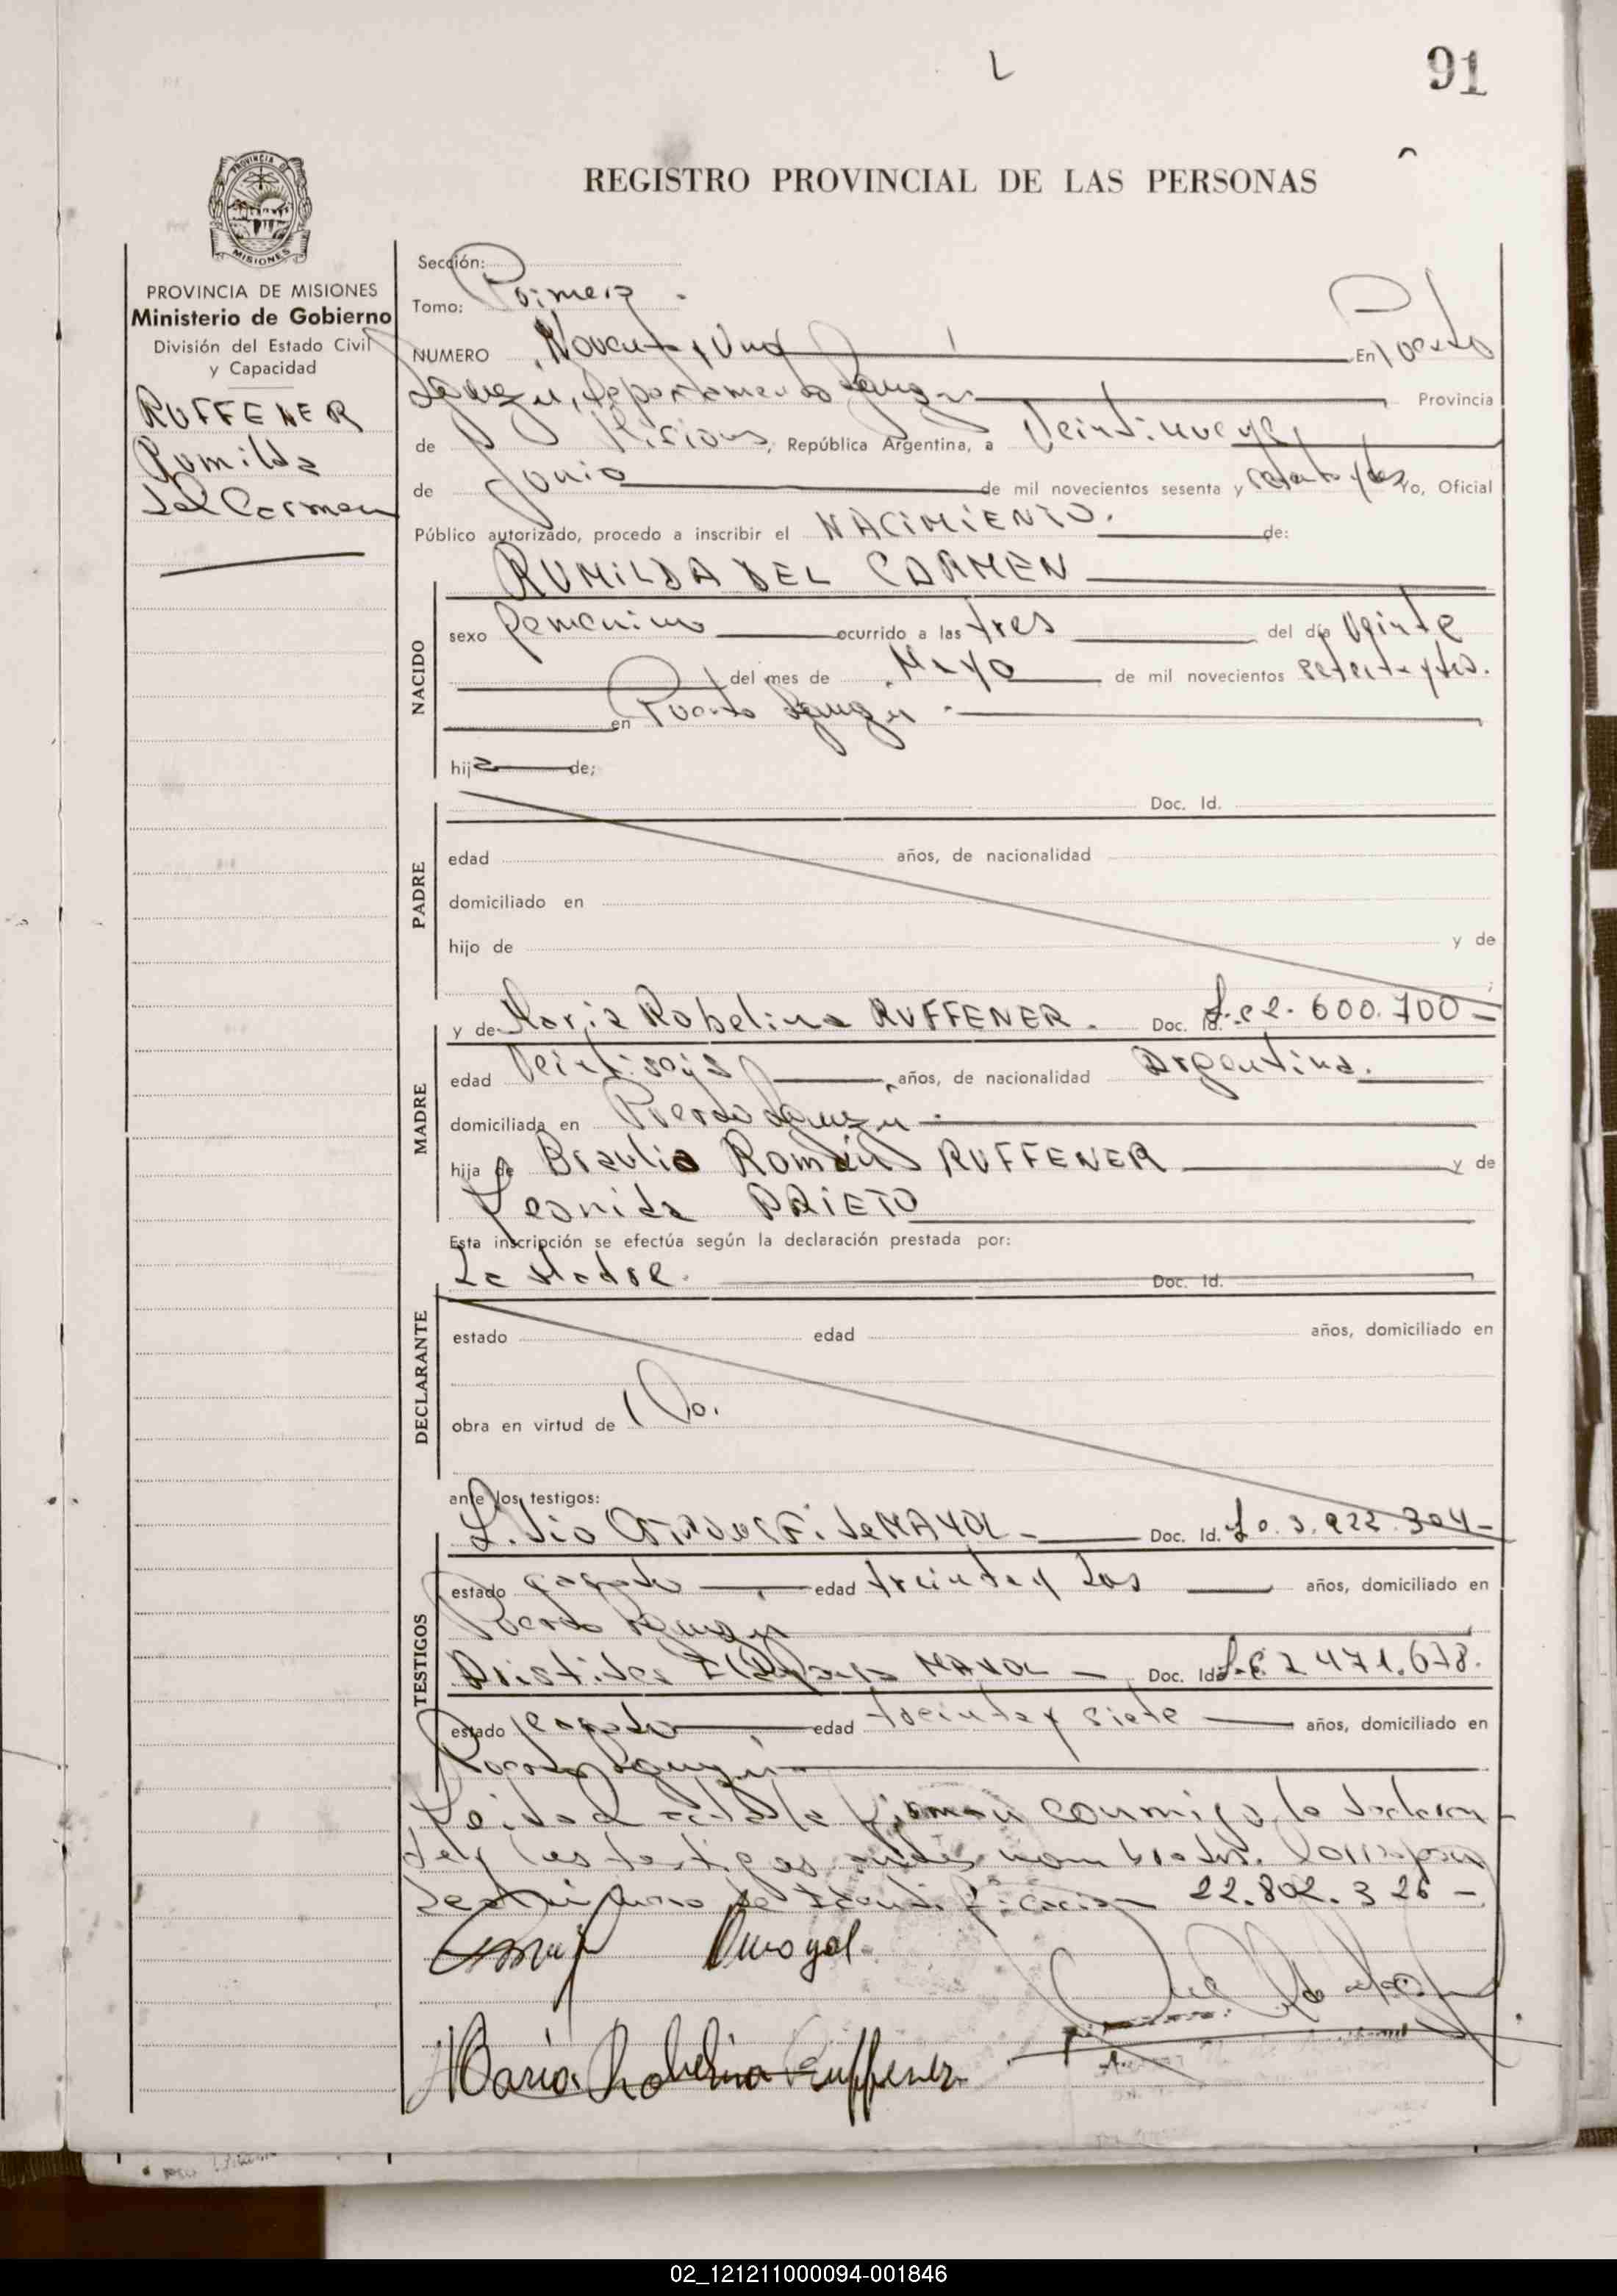 91
REGISTRO PROVINCIAL DE LAS PERSONAS
PROVINCIA DE
MISIONES
PROVINCIA DE MISIONES
Ministerio de Gobierno
División del Estado Civil
y Capacidad
RUFFENER
Rumilda
del Carmen
Sección:
Tomo: Primera.
NUMERO Noventa y Uno En Puerto
Departamento Provincia
de Misiones, República Argentina, a Veintinueve
de Junio de mil novecientos sesenta y setenta y Yo, Oficial
Público autorizado, procedo a inscribir el NACIMIENTO. de:
RUMILDA DEL CARMEN
NACIDO
sexo femenino ocurrido a las tres del día Veinte
del mes de Mayo de mil novecientos
en Puerto
hija de;
PADRE
Doc. Id.
edad años, de nacionalidad
domiciliado en
hijo de y de
;
MADRE
y de Maria Robelina RUFFENER. Doc. Id. 600.700
edad Veintiseis años, de nacionalidad Argentina.
domiciliada en Puerto
hija de Braulio Román RUFFENER y de
Leonida PRIETO
Esta inscripción se efectúa según la declaración prestada por:
La Madre. Doc. Id.
DECLARANTE
estado edad años, domiciliado en
obra en virtud de
ante los testigos:
TESTIGOS
de MAYOL Doc. Id. 3.922.304
estado casada edad treinta y dos años, domiciliado en
Puerto
Aristides MAYOL Doc. Id. 7 471.678.
estado casado edad treinta y siete años, domiciliado en
Puerto
Leida el acta la firman conmigo la declaran-
te y los testigos antes nombrados.
de Identificación 22.802.326
María Robelina Ruffener
02_121211000094-001846